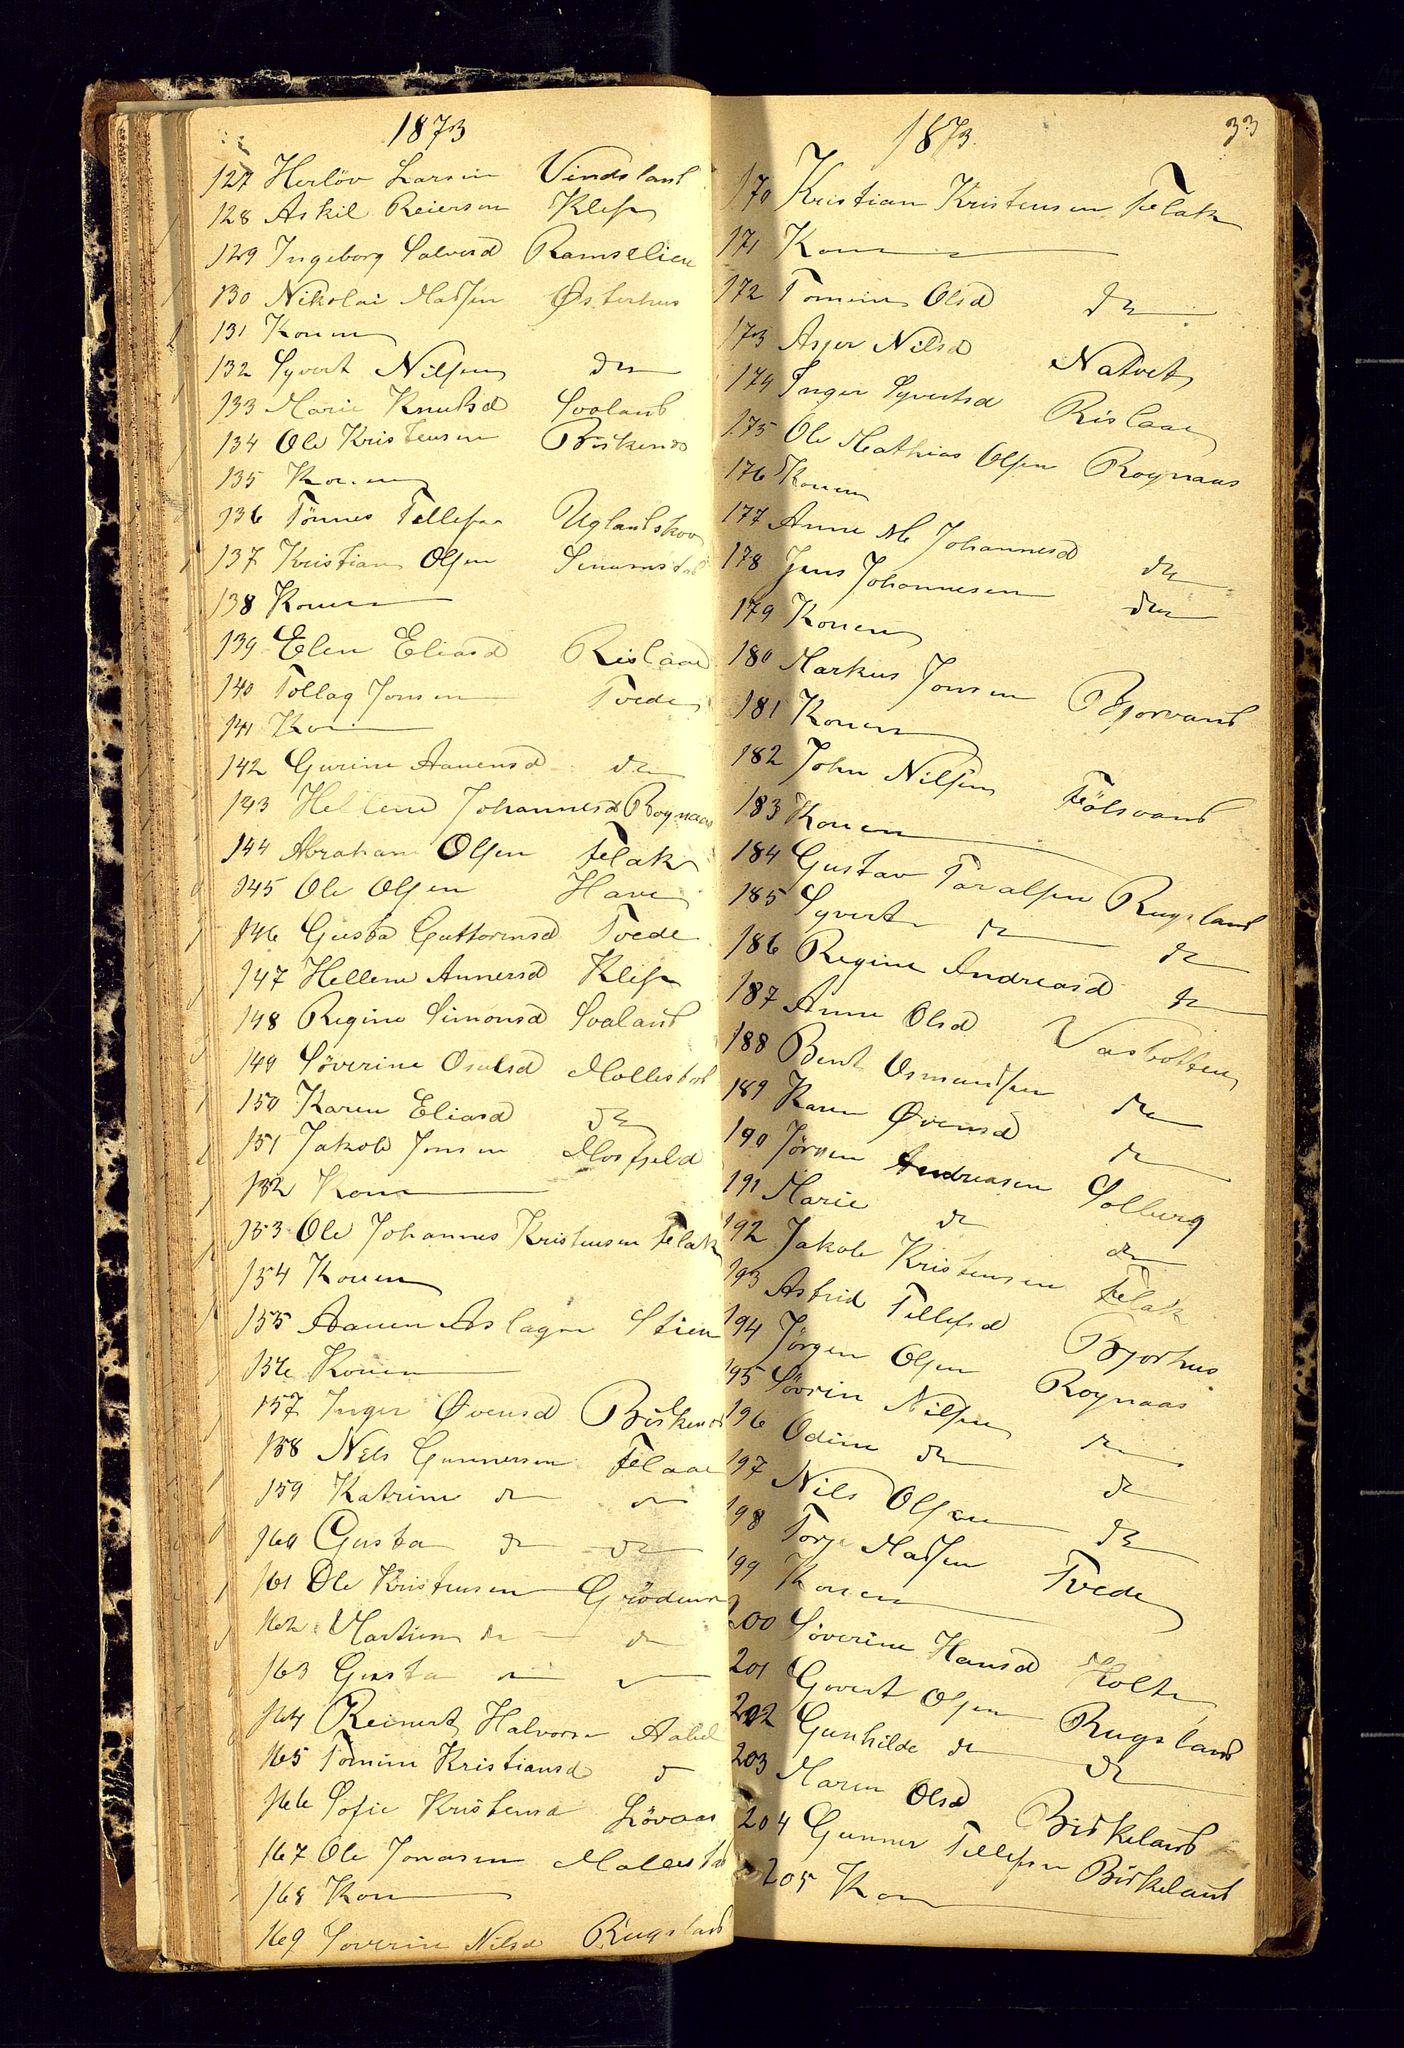 1873
127 Herlöv Larsen Vindsland
128 Askil Reiersen Klep
129 Ingeborg Salvesd Ramselien
130 Nikolai Madsen Østerhus
131 Konen
132 Syvert Nilsen do
133 Marie Knutsd Svaland
134 Ole Kristensen
135 Konen
136 Tönnes Tellefsen Uglandskov
137 Kristian Olsen
138 Konen
139 Elen Eliasd Rislaae
140 Tollag Jonsen Tvede
141 Kon
142 Gurine Aanensd do
143 Hellene Johannesd Roynaas
144 Abraham Olsen Flak
145 Ole Olsen Have
146 Gusta Guttormsd Tvede
147 Hellene Annersd Klep
148 Regine Simonsd Svaland
149 Söverine Osulsd Mollestad
150 Karen Eliasd do
151 Jakob Jonsen Mosfjeld
152 Kone
153 Ole Johannes Kristensen Flak
154 Konen
155 Aanen Aslagsen Stien
156 Konen
157 Inger Øvensd
158 Nils Gunnersen Flaae
159 Katrine do do
160 Gusta do do
161 Ole Kristensen
162 Martin do do
163 Gusta do do
164 Reinert Halvorsen Aabel
165 Tomine Kristiansd do
166 Sofie Kristensd Lövaas
167 Ole Jonasen Mollestad
168 Kon
169 Soverine Nilsd Rugsland
1873. 33
170 Kristian Kristensen Flak
171 Kon
172 Tomine Olsd do
173 Asjer Nilsd Natvet
174 Inger Syvertsd Rislaae
175 Ole Mathias Olsen Roynaas
176 Konen
177 Anne M Johannesd do
178 Jens Johannesen do
179 Konen
180 Markus Jonsen Bjorvand
181 Konen
182 John Nilsen Fölsvand
183 Konen
184 Gustav Taralsen Rugsland
185 Syvert do do
186 Regine Andreasd do
187 Anne Olsd Vasbotten
188 Bent Osmundsen do
189 Karen Øvensd do
190 Jörgen Andreasen Solberg
191 Marie do do
192 Jakob Kristensen Flak
193 Astrid Tellefsd Bjorhus
194 Jörgen Olsen Roynaas
195 Sövrin Nilsen do
196 Odine do do
197 Nils Olsen do
198 Torje Madsen Tvede
199 Konen
200 Söverine Hansd Holte
201 Govert Olsen Rugsland
202 Gunhilde do do
203 Maren Olsd Birkeland
204 Gunner Tellefsen Birkeland
205 Kon